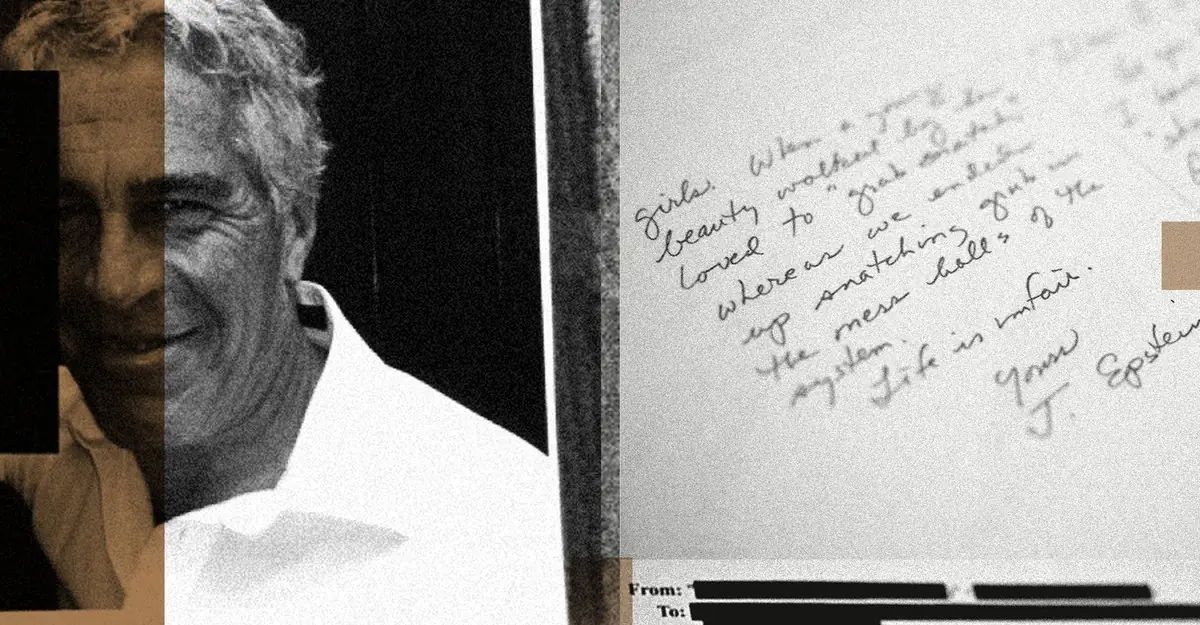 girls. When a young
beauty walked by he
loved to "grab snatch,"
whereas we ended
up snatching grub in
the mess halls of the
system.
Life is unfair.
Yours
J. Epstein
Dear
I
From:
To: